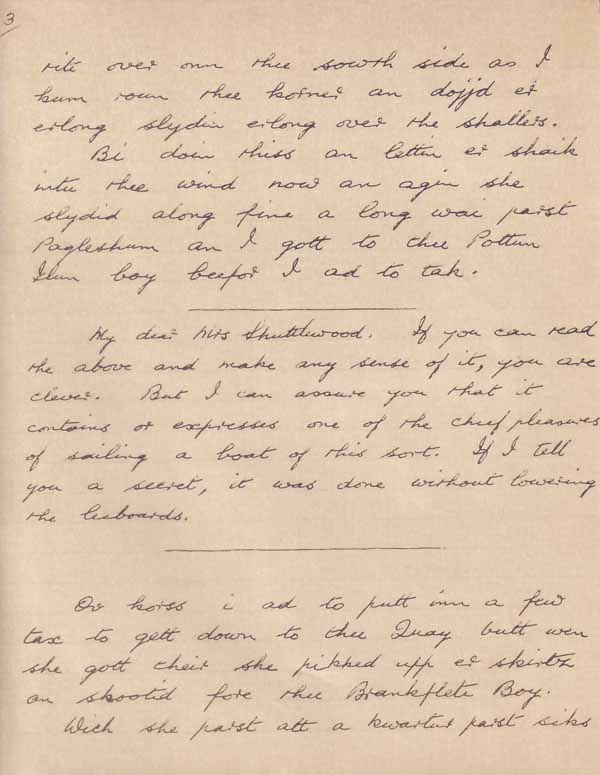 3
rite over onn thee sowth side as I
kum roun thee korner an dojjd er
erlong slydin erlong over the shallers.
Bi doin thiss an lettin er shaik
intu thee wind now an agin she
slydid along fine a long wai parst
Pagleshum an I gott to thee Pottun
Ilun boy beefor I ad to tak.
My dear Mrs Shuttlewood. If you can read
the above and make any sense of it, you are
clever. But I can assure you that it
contains or expresses one of the chief pleasures
of sailing a boat of this sort. If I tell
you a secret, it was done without lowering
the leeboards.
Ov korss i ad to putt inn a few
tax to gett down to thee Quay butt wen
she gott cleir she pikked upp er skirts
an skootid fore thee Brankflete Boy.
Wich she parst att a kwarter parst siks